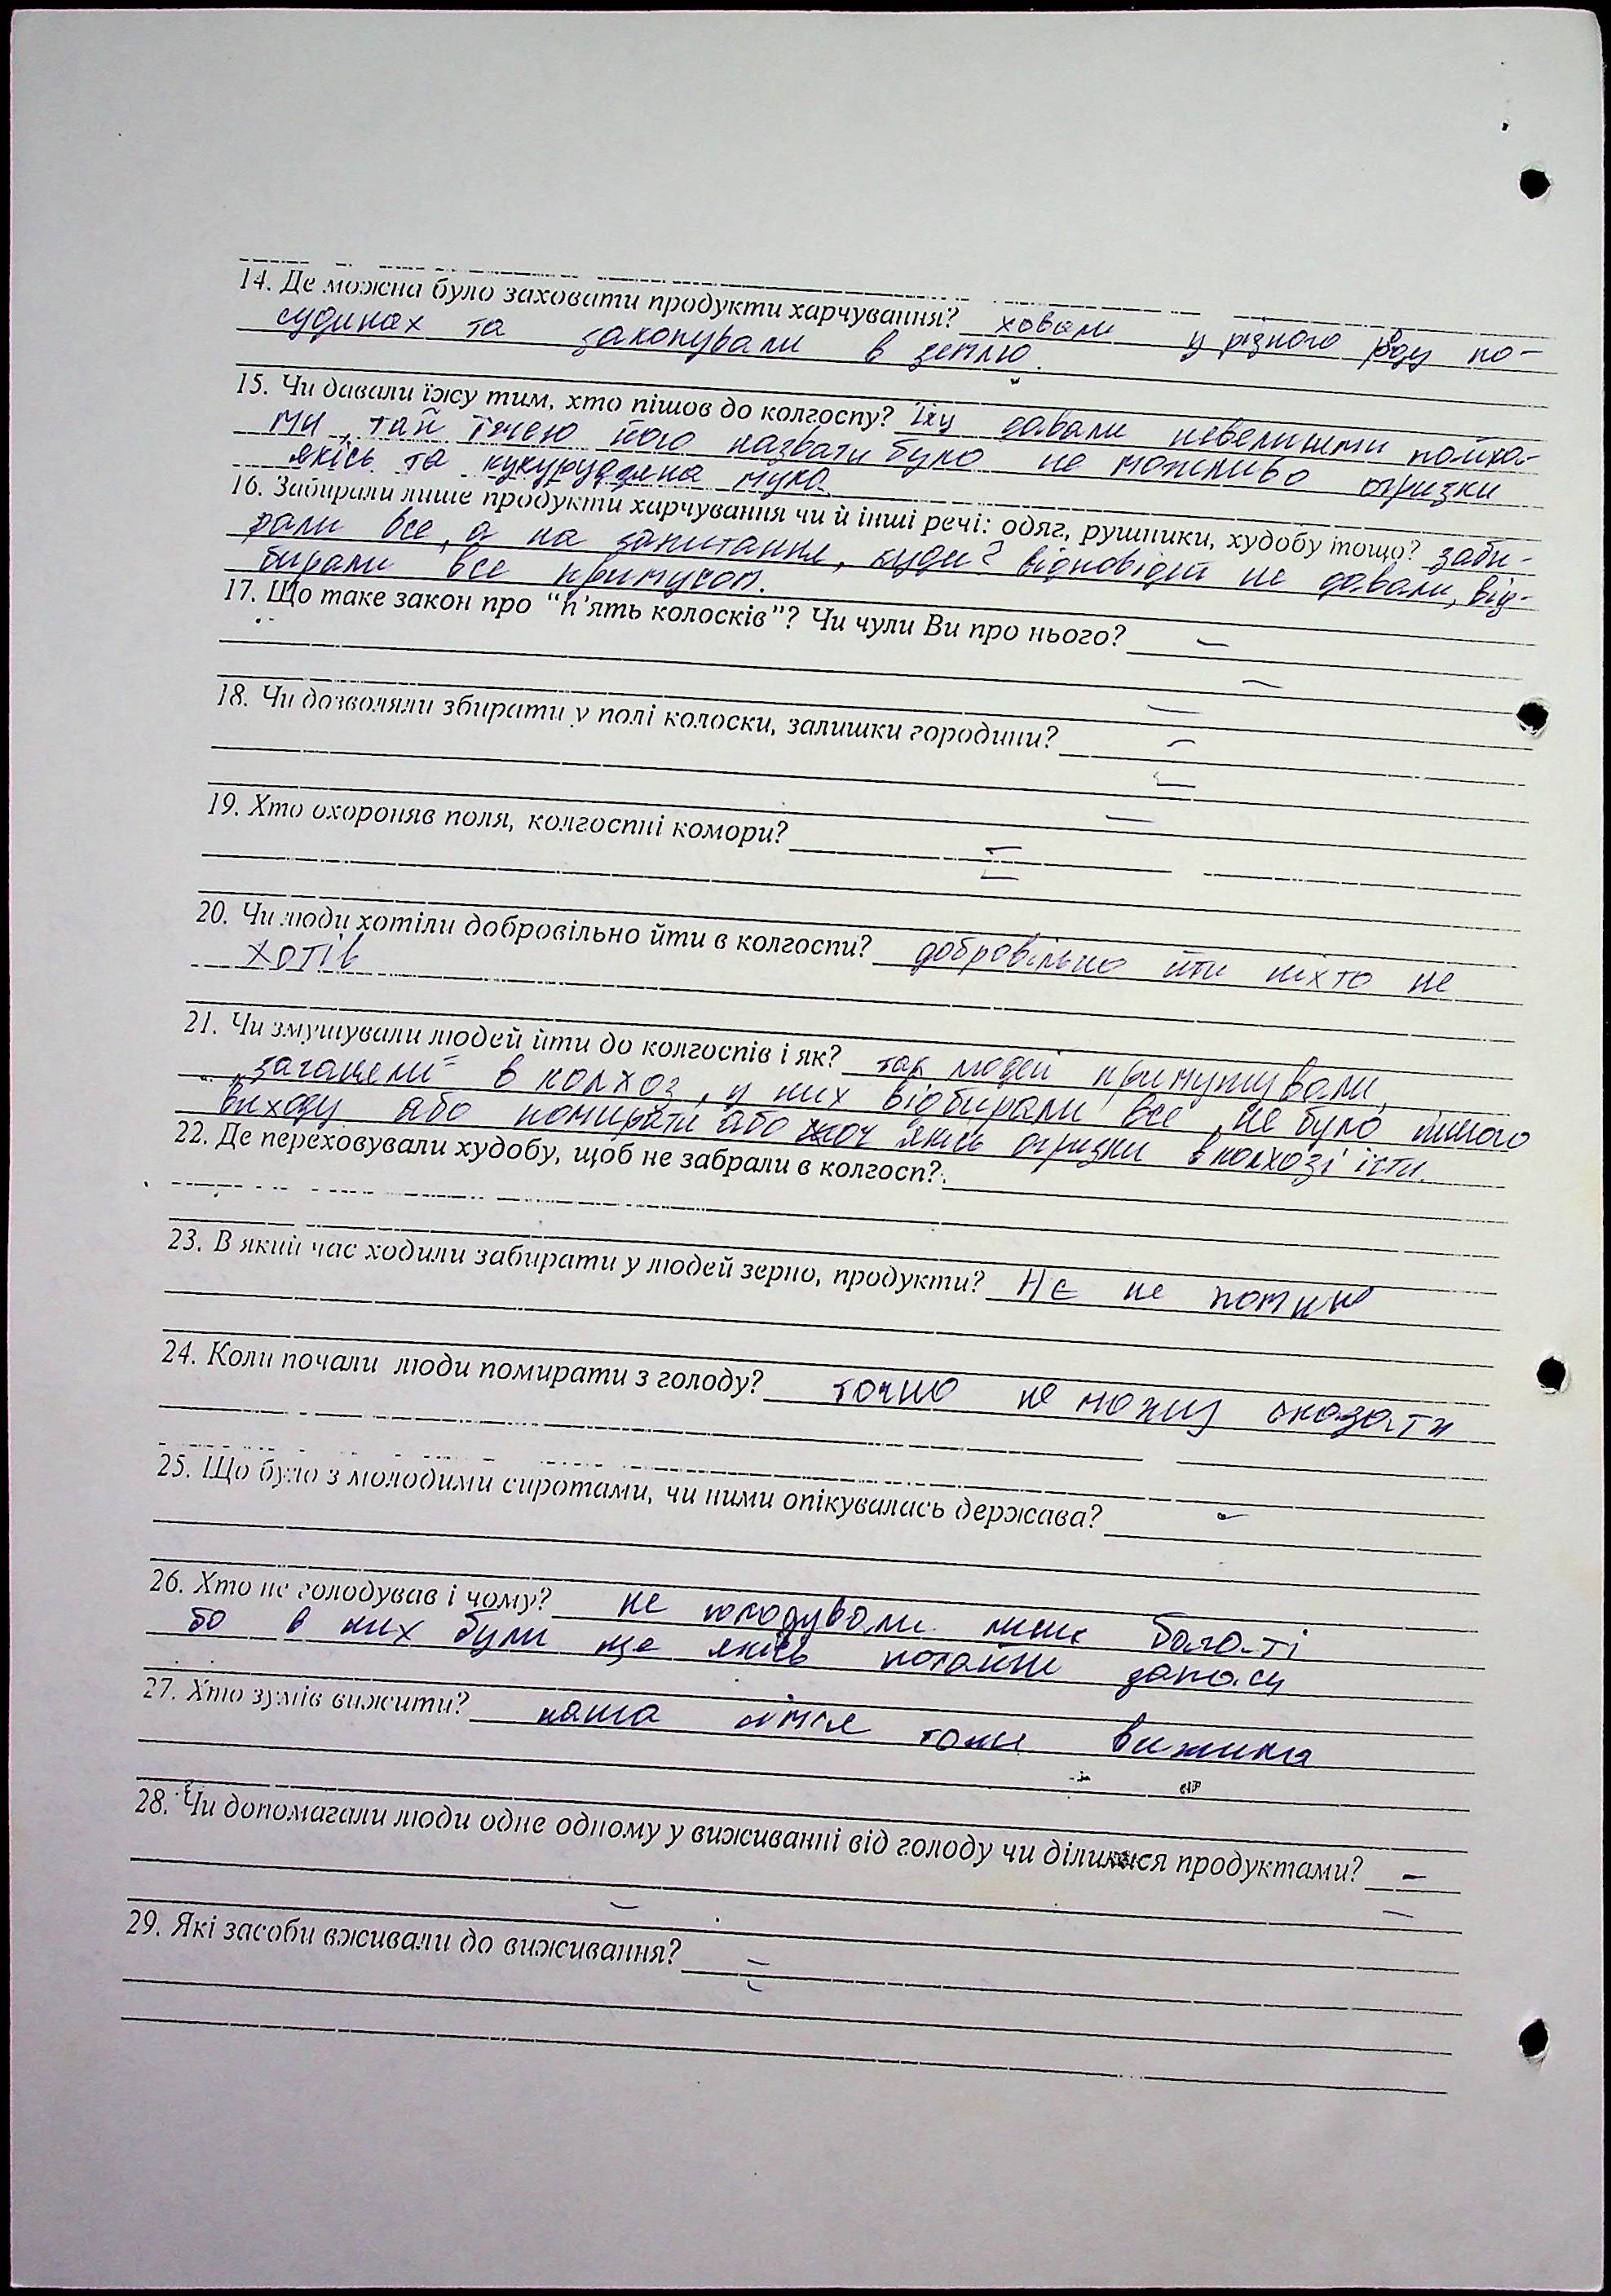 14. Де можна було заховати продукти харчування? ховали у різного роду по-
судинах та закопували в землю.
15. Чи давали їжу тим, хто пішов до колгоспу? їжу давали невеликими пайка-
ми, тай їжею його назвати було не можливо огризки
якісь та кукурудзяна мука
16. Забирали лише продукти харчування чи й інші речі: одяг, рушники, худобу тощо? заби-
рали все, а на запитання, куди? відповідей не давали, від-
бирали все примусом.
17. Що таке закон про "п'ять колосків"? Чи чули Ви про нього? –
18. Чи дозволяли збирати у полі колоски, залишки городини? –
19. Хто охороняв поля, колгоспні комори? –
20. Чи люди хотіли добровільно йти в колгоспи? добровільно йти ніхто не
хотів
21. Чи змушували людей йти до колгоспів і як? так людей примушували,
"заганяли" в колхоз, у них відбирали все, не було іншого
виходу або помирати або хоч якісь огризки в колхозі їсти.
22. Де переховували худобу, щоб не забрали в колгосп?
23. В який час ходили забирати у людей зерно, продукти? Не не поминю
24. Коли почали люди помирати з голоду? точно не можу сказати
25. Що було з молодими сиротами, чи ними опікувалась держава? –
26. Хто не голодував і чому? не голодували лише багаті
бо в них були ще якісь потайні запаси
27. Хто зумів вижити? наша сім'я тоже вижила
28. Чи допомагали люди одне одному у виживанні від голоду чи ділилися продуктами? –
29. Які засоби вживали до виживання? –